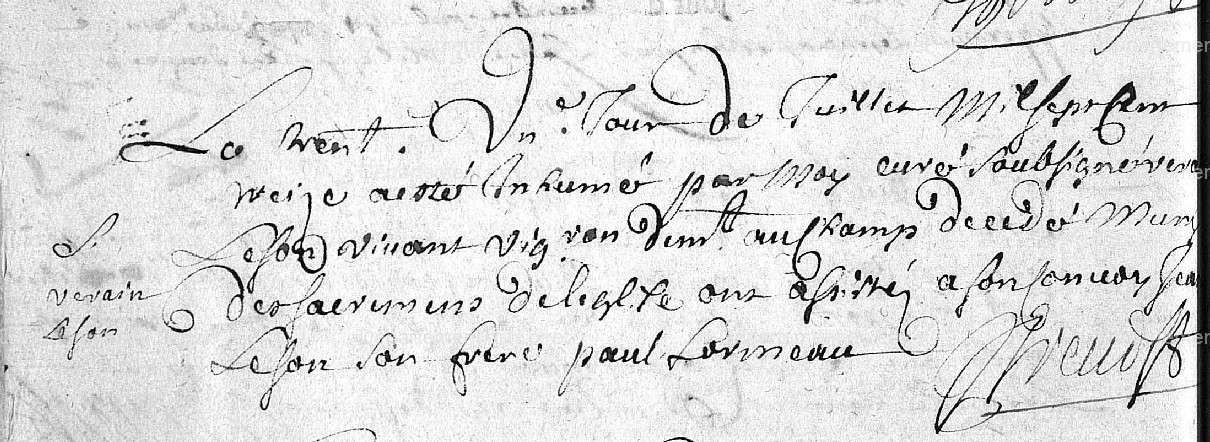 Le trent. Un.e Jour de Juillet Mil sept cent
treize a esté Inhumé par Moy curé soubsigné vera
Leson vivant vig.ron dem.t au champ decedé Muny
des sacremens de leglise ont assisté a son convoy Jea
Leson son frere paul Lormeau
S.
verain
Leson